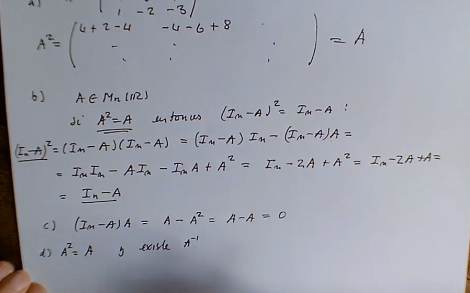 a)
1 -2 -3
A² = ( 4+2-4 -4-6+8 . ) = A
b) A ∈ Mn(IR)
Si A²=A entonces (In-A)² = In-A :
(In-A)² = (In-A)(In-A) = (In-A) In - (In-A)A =
= In In - A In - In A + A² = In - 2A + A² = In - 2A + A =
= In - A
c) (In-A)A = A - A² = A-A = 0
d) A² = A y existe A⁻¹